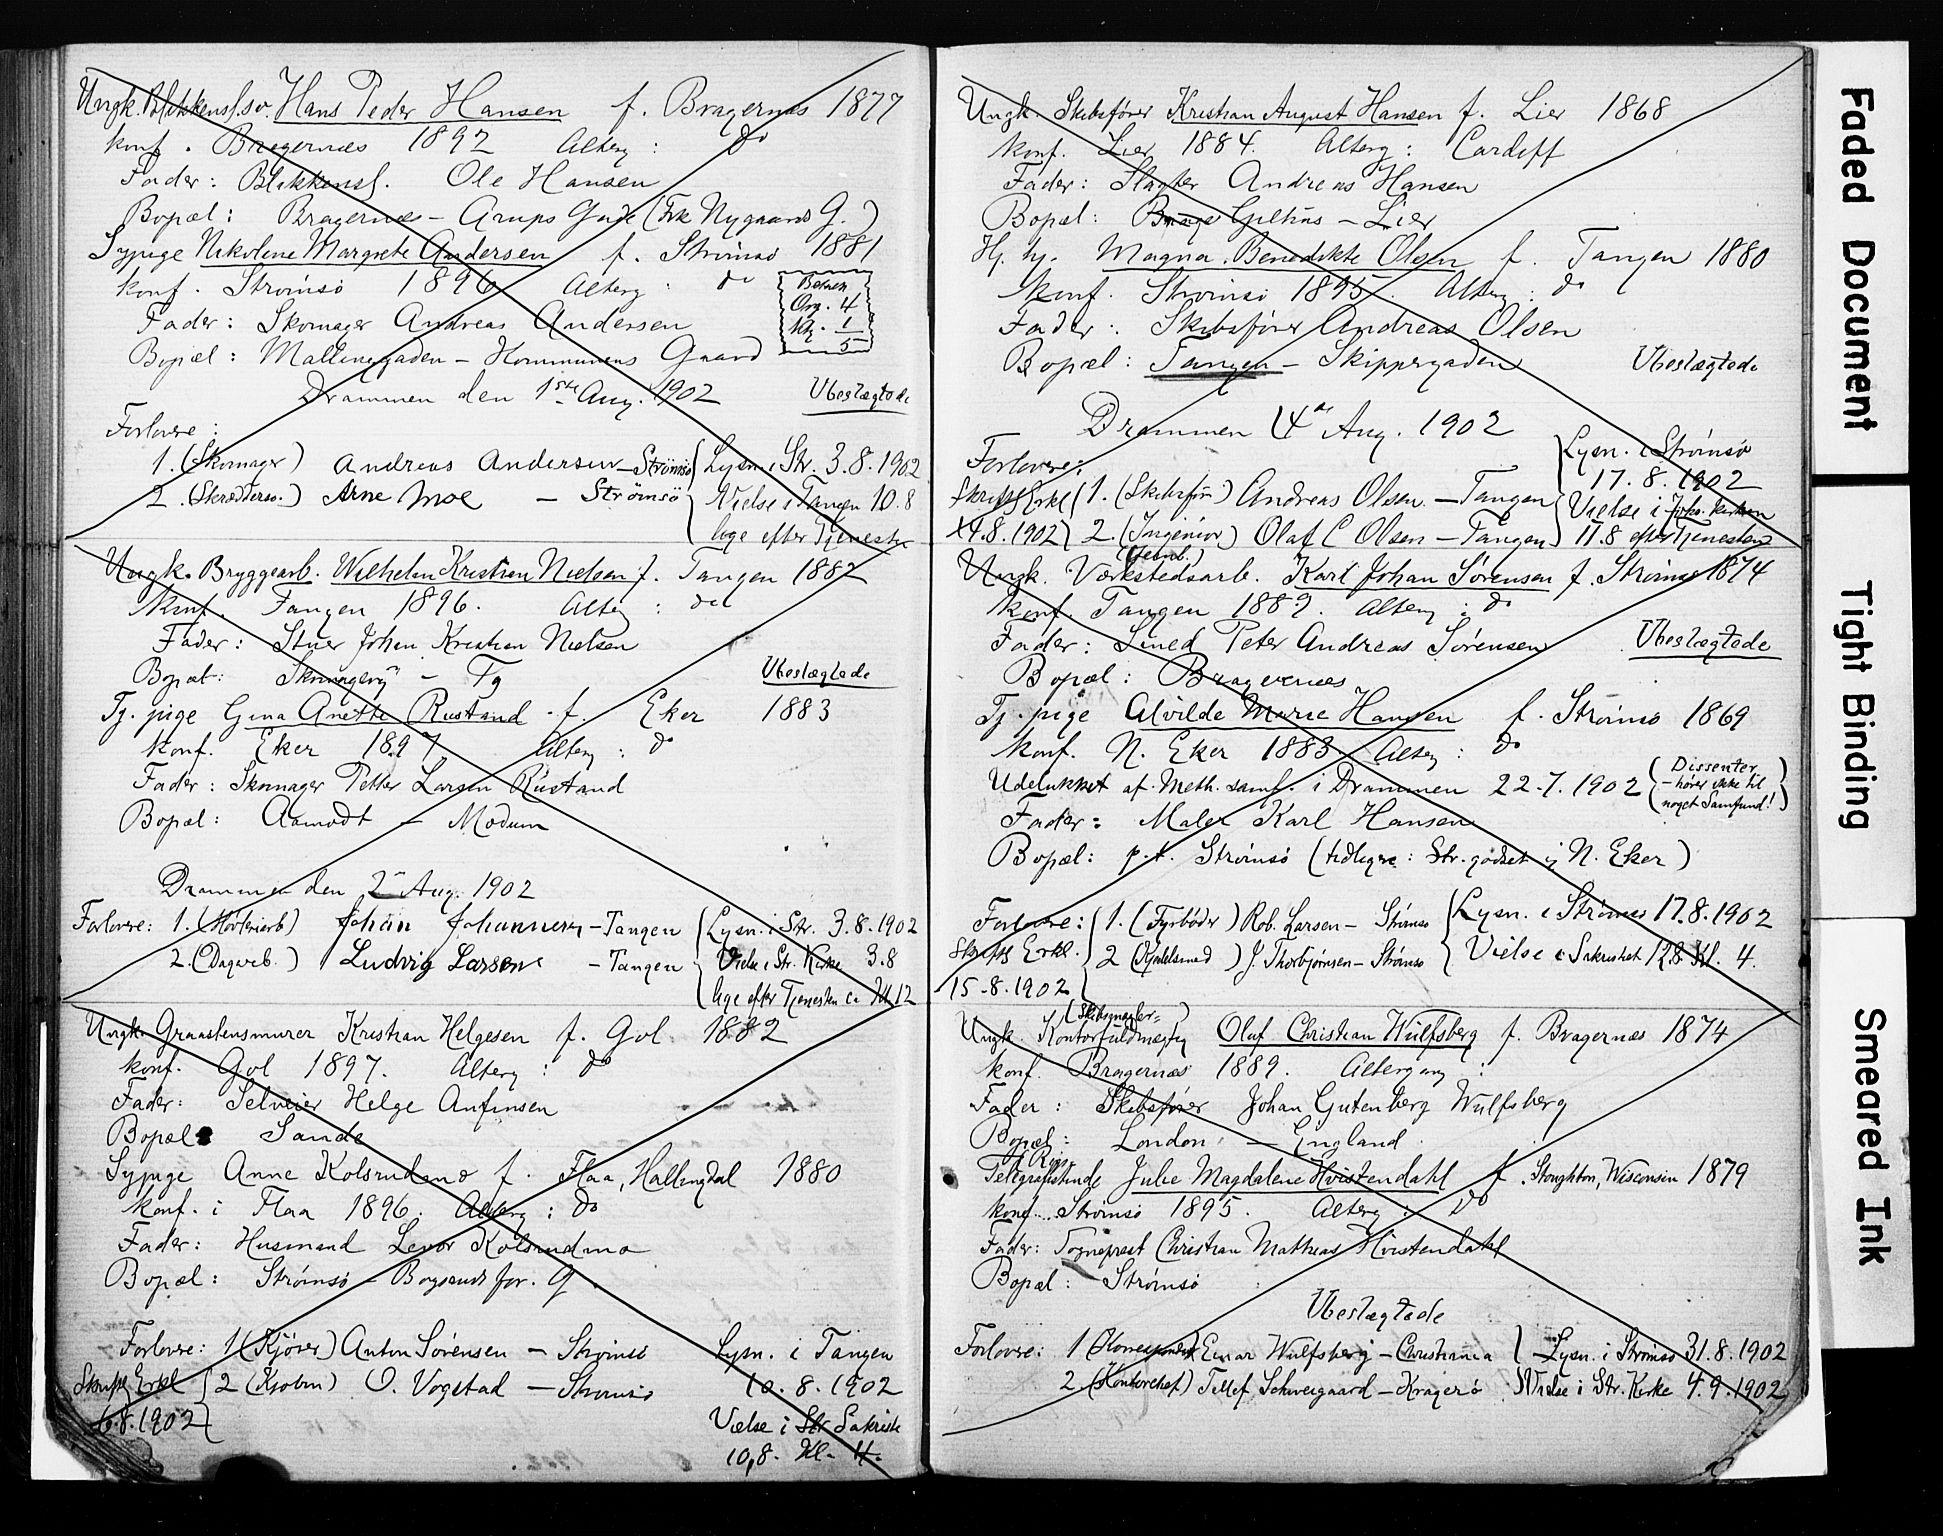 Ungk. Blikkensl.sv. Hans Peder Hansen f. Bragernæs 1877
konf. Bragernæs 1892 Alterg: do
Fader: Blikkensl. Ole Hansen
Bopæl: Bragernæs - Arups Gade (Frk Nygaards G.)
Sypige Nikoline Margrete Andersen f. Strømsø 1881
konf. Strømsø 1896 Alterg: do
Fader: Skomager Andreas Andersen
Bopæl: Mallinggaden - Kommunens Gaard
Org. 4
Kl. 1
5
Drammen den 1ste Aug. 1902 Ubeslægtede
Forlovere:
1. (Skomager) Andreas Andersen - Strømsø
2. (Skræddersv.) Arne Moe - Strømsø
Lysn. i Str. 3.8.1902
Vielse i Tangen 10.8
lige efter Tjenesten
Ungk. Bryggearb. Wilhelm Kristian Nielsen f. Tangen 1882
konf. Tangen 1896. Alterg: do
Fader: Stuer Johan Kristian Nielsen
Bopæl: - Tg
Ubeslægtede
Tj. pige Gina Anette Rustand f. Eker 1883
konf. Eker 1897 Alterg: do
Fader: Skomager Petter Larsen Rustand
Bopæl: Aamodt - Modum
Drammen den 2den Aug. 1902
Forlovere: 1. Johan Johannesen - Tangen
2. (Dagarb.) Ludvig Larsen - Tangen
Lysn. i Str. 3.8.1902
Vielse i Str. Kirke 3.8
lige efter Tjenesten ca Kl 12
Ungk. Graastensmurer Kristian Helgesen f. Gol 1882
konf. Gol 1897. Alterg: do
Fader: Selveier Helge Anfinsen
Bopæl: Sande
Sypige Anne Kolsrudmo f. Flaa, Hallingdal 1880
konf. i Flaa 1896. Alterg: do
Fader: Husmand Levor Kolsrudmo
Bopæl: Strømsø - G.
Forlovere: 1 (Kjører) Anton Sørensen - Strømsø
Skriftl Erkl 2 (Kjøbm) O. Vogstad - Strømsø
6.8.1902
Lysn. i Tangen
10.8.1902
Vielse i Str Sakristi
10,8. Kl. 4.
Ungk. Skibsfører Kristian August Hansen f. Lier 1868
konf. Lier 1884. Alterg: Cardiff
Fader: Slagter Andreas Hansen
Bopæl: Gilhus - Lier
Hj. hj. Magna Benedikte Olsen f. Tangen 1880
konf. Strømsø 1895. Alterg: do
Fader: Skibsfører Andreas Olsen
Bopæl: Tangen - Skippergaden Ubeslægtede
Drammen 4de Aug. 1902
Forlovere:
Skriftl Erkl 1. (Skibsfør) Andreas Olsen - Tangen
14.8.1902 2. (Ingeniør) Olaf C Olsen - Tangen
Lysn. i Strømsø
17.8.1902
Vielse i Joh. kirken
17.8 efter Tjenesten
Ungk. Værkstedsarb. Karl Johan Sørensen f. Strømsø 1874
konf. Tangen 1889. Alterg: do
Fader: Smed Peter Andreas Sørensen Ubeslægtede
Bopæl: Bragernæs
Tj. pige Alvilde Marie Hansen f. Strømsø 1869
konf. N. Eker 1883 Alterg: do
Udelukket af Meth. samf. i Drammen 22-7.1902 (Dissenter
- hører ikke til
noget Samfund!)
Fader: Maler Karl Hansen
Bopæl: p.t. Strømsø (tidligere: Str.godset i N. Eker)
Forlovere: 1. (Fyrbøder) Rob. Larsen - Strømsø
Skriftl Erkl. 2 (Kjedelsmed) J. Thorbjørnsen - Strømsø
15-8.1902
Lysn. i Strømsø 17.8.1902
Vielse i Sakristiet Kl. 4.
(Skibsmægler-)
Ungk. Kontorfuldmægtig Oluf Christian Wulfsberg f. Bragernæs 1874
konf. Bragernæs 1889. Altergang:
Fader: Skibsfører Johan Gutenberg Wulfsberg
Bopæl: London - England
Telegrafistinde Julie Magdalene Hvistendahl f. Stoughton, Wisconsin 1879
konf. Strømsø 1895. Alterg: do
Fader: Sogneprest Christian Mathias Hvistendahl
Bopæl: Strømsø
Ubeslægtede
Forlovere: 1 Einar Wulfsberg - Christiania
2 (Kontorchef) Tellef Schweigaard - Kragerø
Lysn. i Strømsø 31.8.1902
Vielse i Str. Kirke 4.9.1902
Faded Document
Tight Binding
Smeared Ink